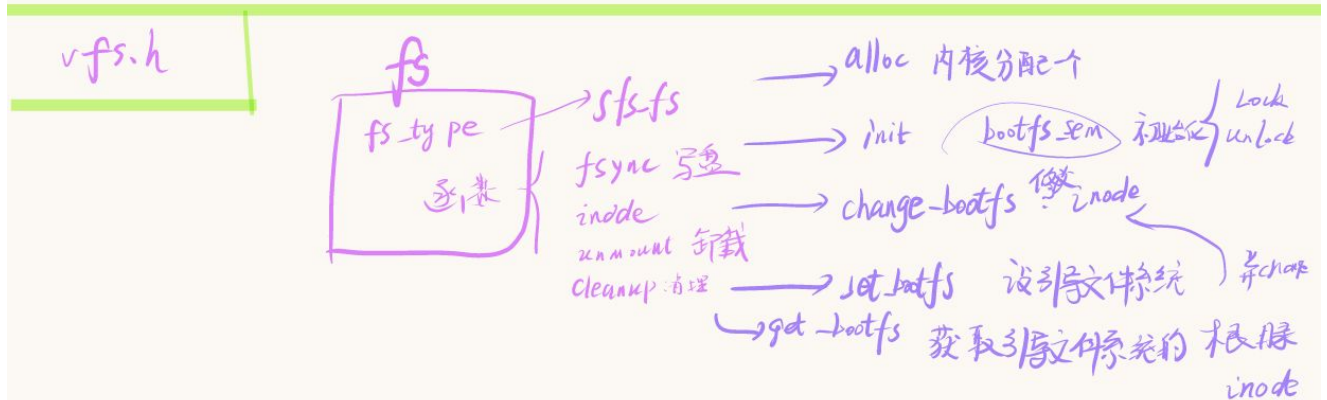 vfs.h
fs
fs_type
函数
sfs_fs
fsync 写盘
inode
unmount 卸载
cleanup 清理
alloc 内核分配一个
init bootfs_sem 初始化 Lock unlock
change_bootfs 修改? inode
set_bootfs 设引导文件系统
get_bootfs 获取引导文件系统的根目录
inode